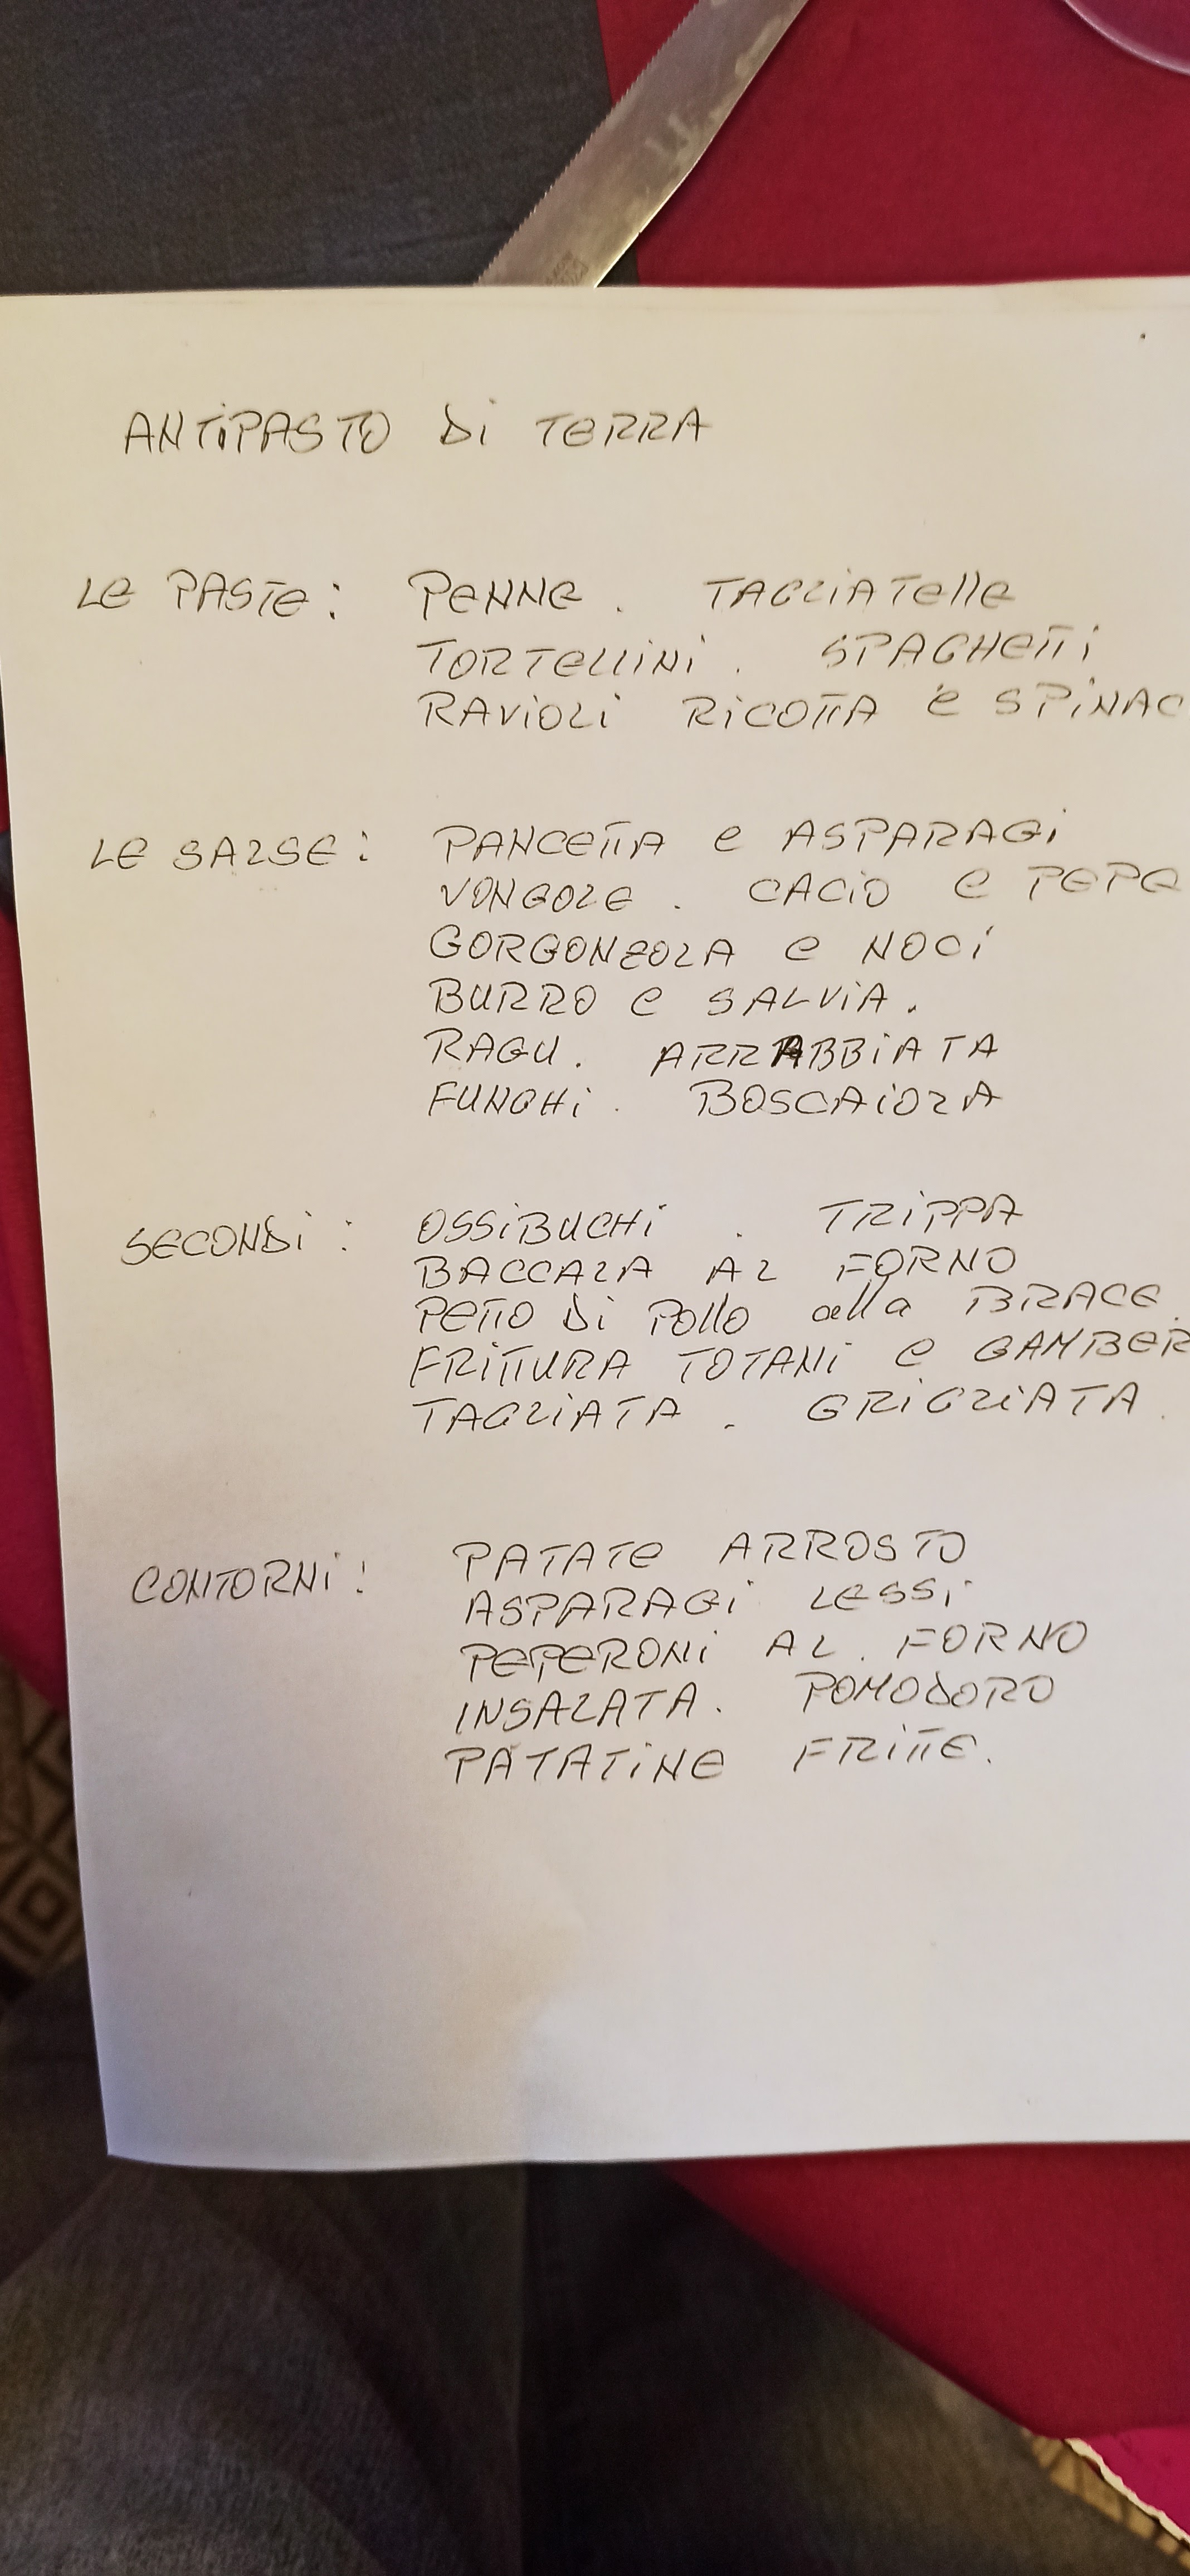 ANTIPASTO DI TERRA
LE PASTE: PENNE. TAGLIATELLE
TORTELLINI. SPAGHETTI
RAVIOLI RICOTTA E SPINAC
LE SALSE: PANCETTA E ASPARAGI
VONGOLE. CACIO E PEPE
GORGONZOLA E NOCI
BURRO E SALVIA.
RAGU. ARRABBIATA
FUNGHI. BOSCAIOLA
SECONDI: OSSIBUCHI. TRIPPA
BACCALA AL FORNO
PETTO DI POLLO alla BRACE.
FRITTURA TOTANI E GAMBER
TAGLIATA. GRIGLIATA.
CONTORNI: PATATE ARROSTO
ASPARAGI LESSI
PEPERONI AL FORNO
INSALATA. POMODORO
PATATINE FRITTE.